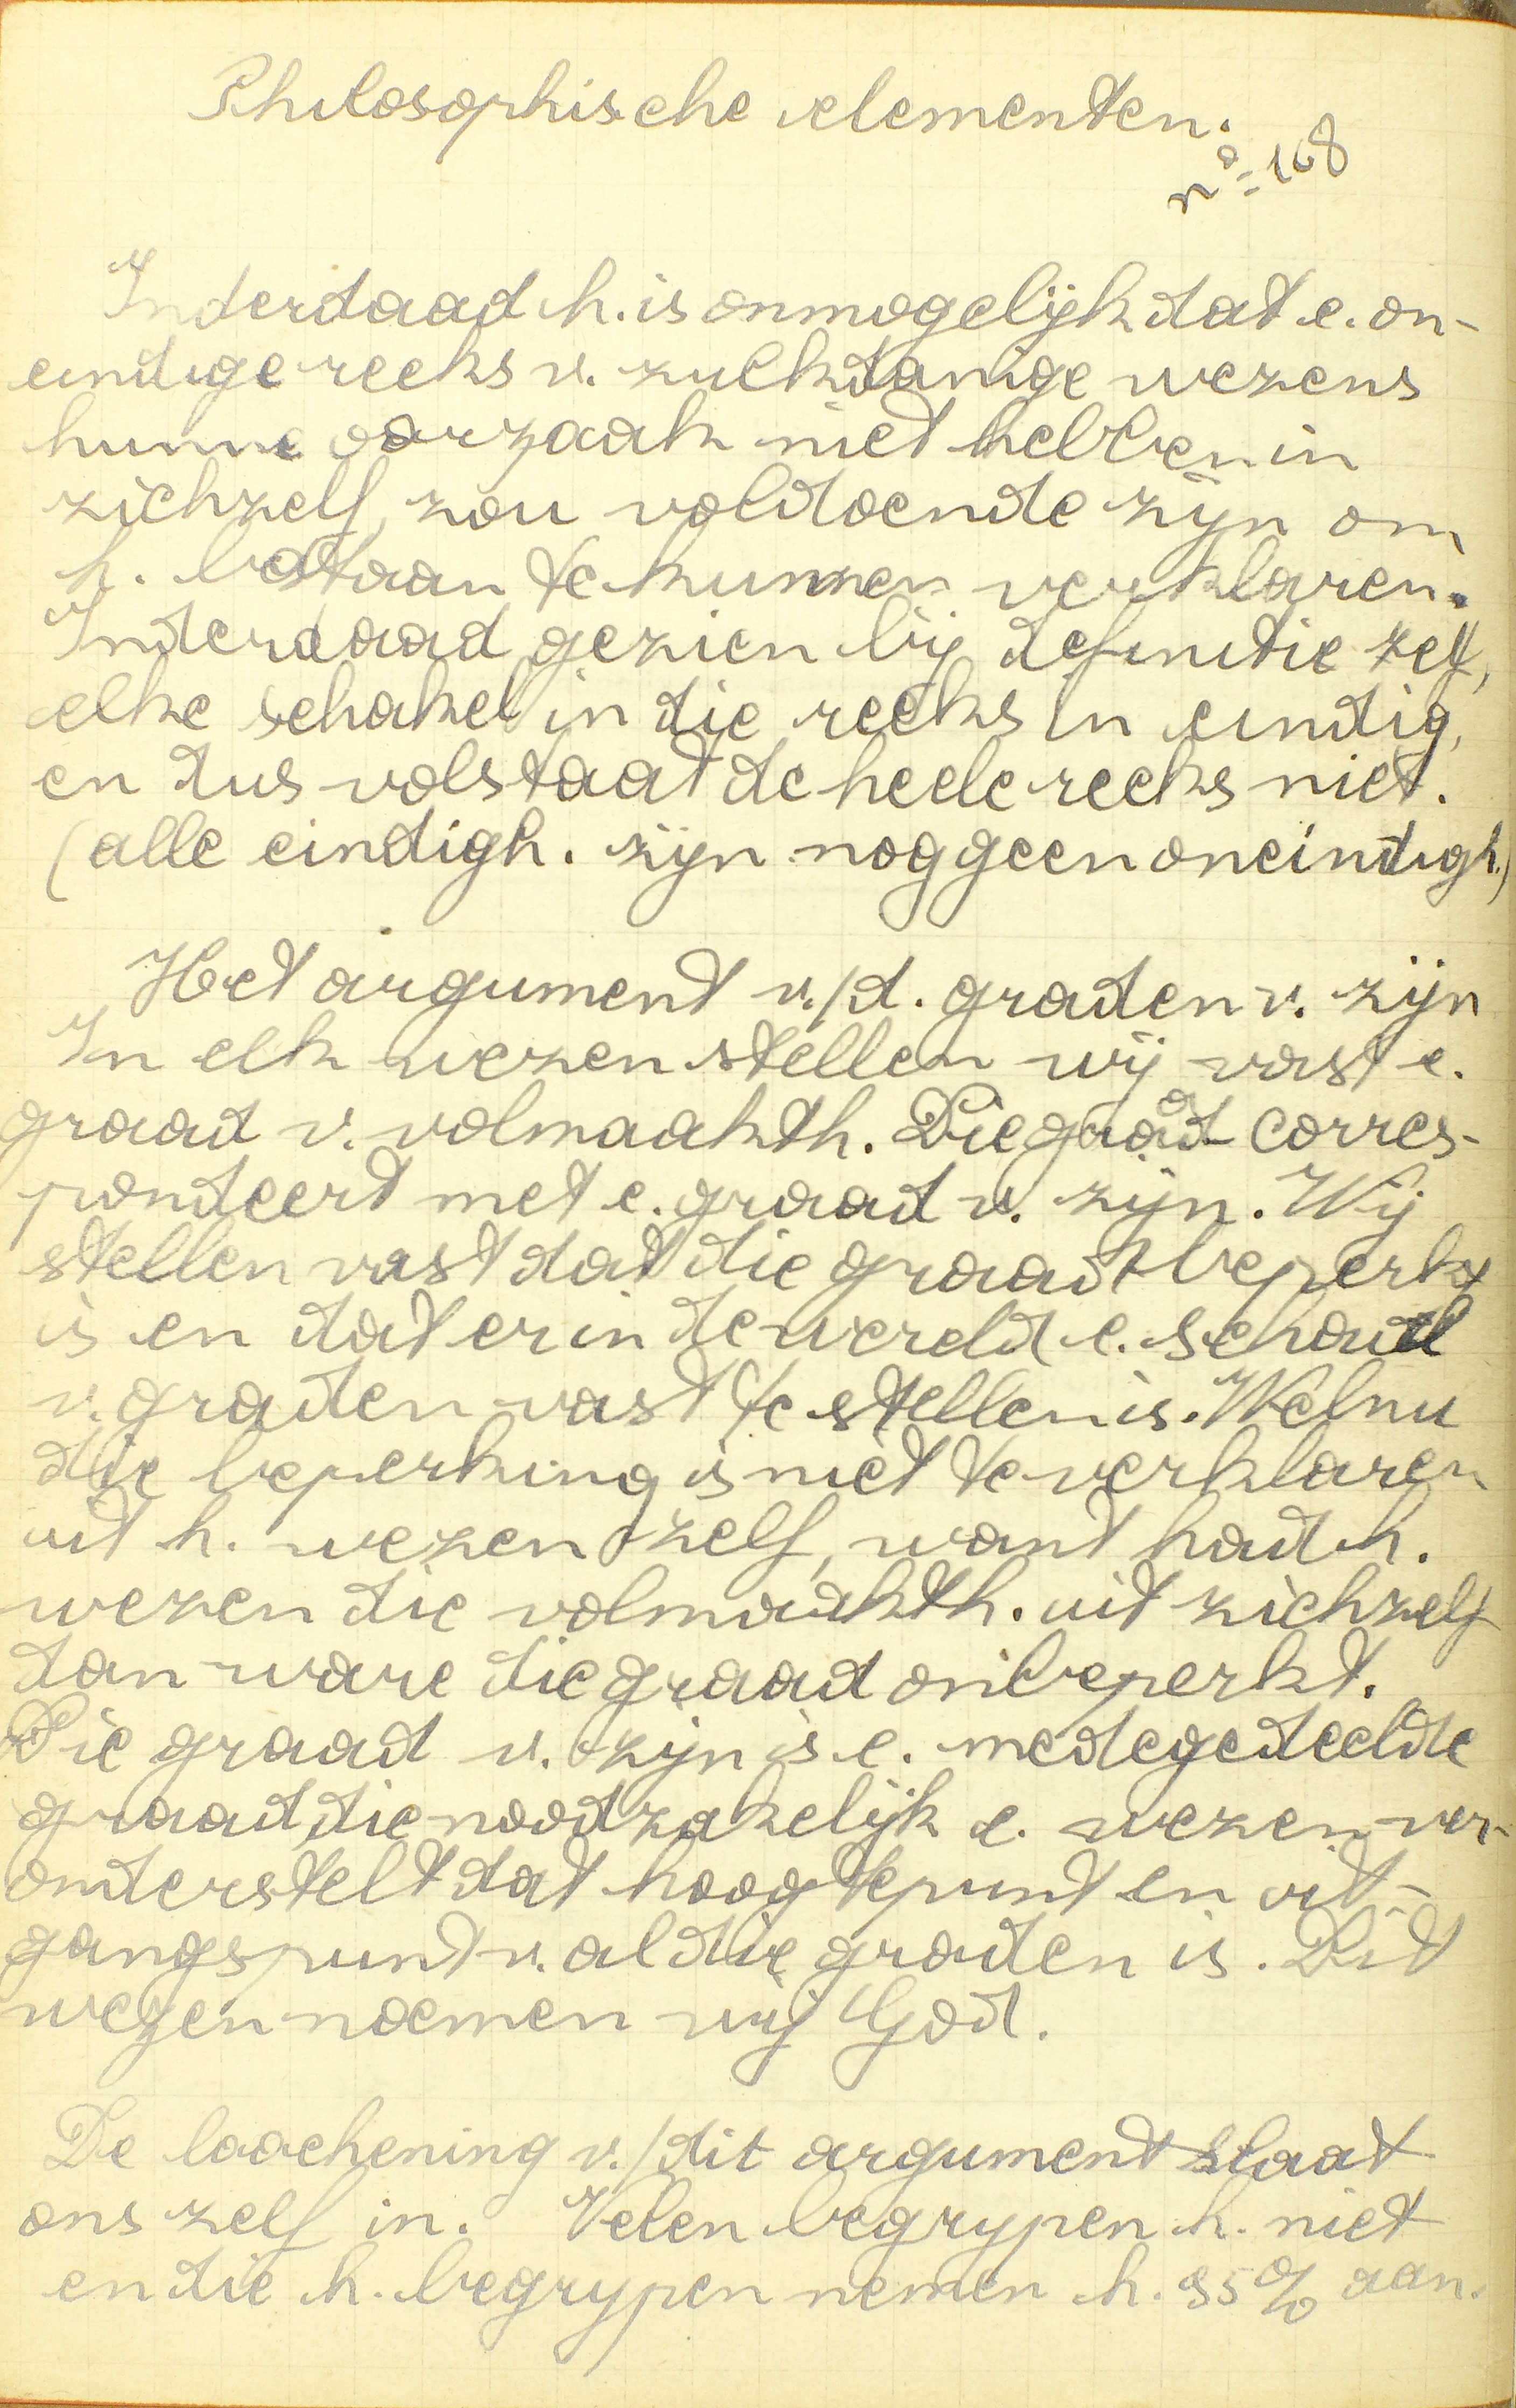 Philosophische elementen.
nº: 168
Inderdaad h. is onmogelijk dat e. on-
eindige reeks v. zulkdanige wezens
hunne oorzaak niet hebben in
zichzelf, zou voldoende zijn om
h. bestaan te kunnen verklaren.
Inderdaad gezien bij definitie zelf,
elke schakel in die reeks in eindig,
en dus volstaat de heele reeks niet.
(alle eindigh. zijn nog geen oneindigh.)
Het argument v./d. graden v. zijn
In elk wezen stellen wij vast e.
graad v. volmaakth. Die graad corres-
pondeert met e. graad v. zijn. Wij
stellen vast dat die graad beperkt
is en dat er in de wereld e. schaal
v. graden vast te stellen is. Welnu
die beperking is niet te verklaren
uit h. wezen zelf, want had h.
wezen die volmaakth. uit zichzelf
dan ware die graad onbeperkt.
Die graad v. zijn is e. medegedeelde
graad die noodzakelijk e. wezen ver-
onderstelt dat hoogtepunt en uit-
gangspunt v. al die graden is. Dit
wezen noemen wij God.
De loochening v./dit argument slaat
ons zelf in. Velen begrypen h. niet
en die h. begrypen nemen h. aan.